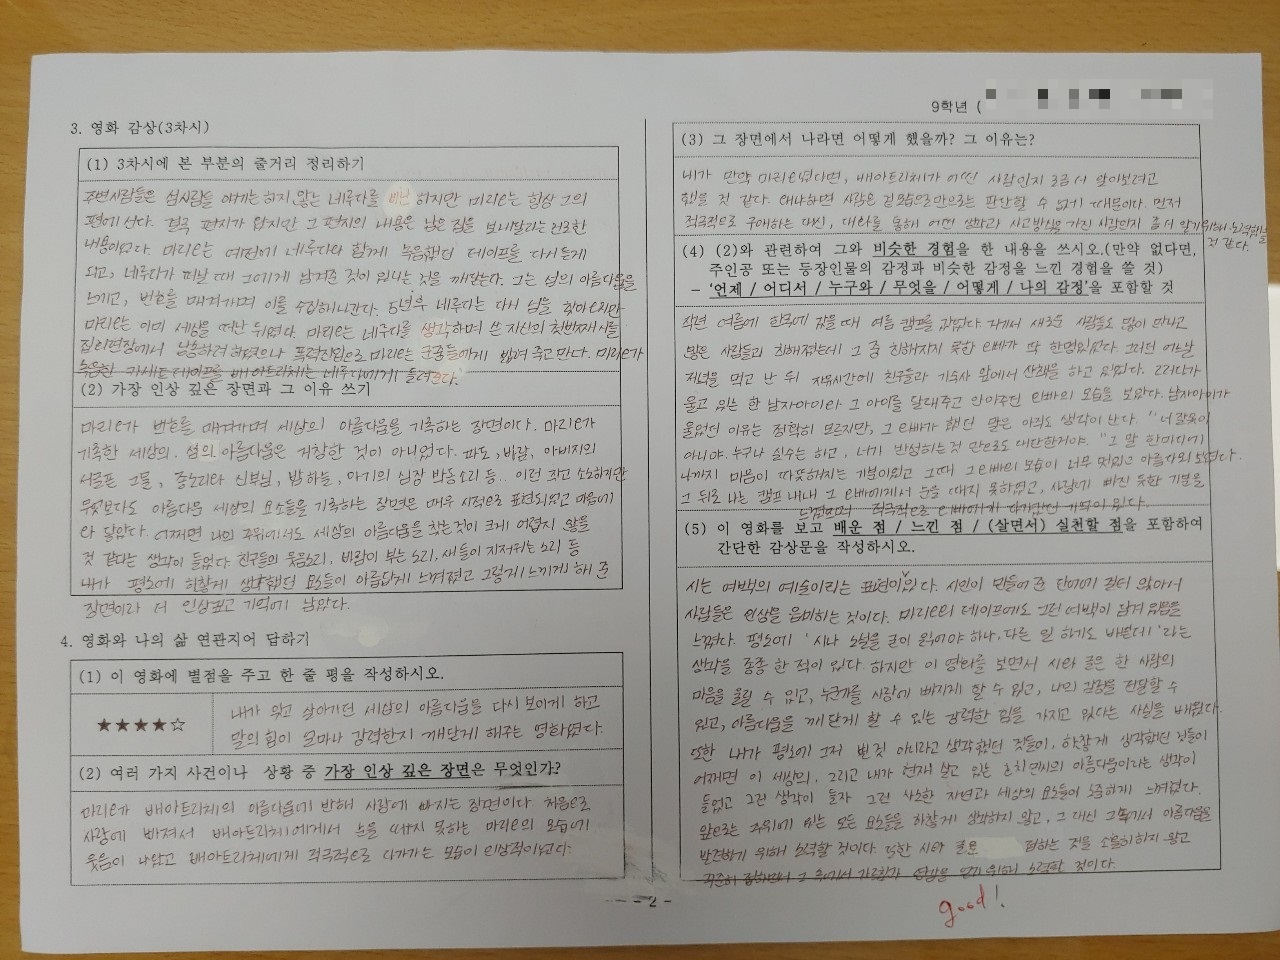 3. 영화 감상(3차시)
(1) 3차시에 본 부분의 줄거리 정리하기
주변사람들은 섬사람들 얘기는 하지 않는 네루다를 하지만 마리오는 항상 그의
편에 선다. 결국 편지가 왔지만 그 편지의 내용은 남은 짐을 보내달라는 건조한
내용이었다. 마리오는 예전에 네루다와 함께 녹음했던 테이프를 다시 듣게
되고, 네루다가 떠날 때 그에게 남겨준 것이 있다는 것을 깨닫는다. 그는 섬의 아름다움을
느끼고, 번호를 매겨가며 이를 수집해나간다. 5년후 네루다는 다시 섬을 찾아오지만
마리오는 이미 세상을 떠난 뒤였다. 마리오는 네루다를 생각하며 쓴 자신의 첫번째 시를
집회현장에서 낭송하려 하였으나 폭력진압으로 마리오는 군중들에게 밟혀 죽고 만다. 마리오가
녹음한 카세트 테이프를 배아트리체는 네루다에게 들려준다.
(2) 가장 인상 깊은 장면과 그 이유 쓰기
마리오가 번호를 매겨가며 세상의 아름다움을 기록하는 장면이다. 마리오가
기록한 세상의, 섬의 아름다움은 거창한 것이 아니었다. 파도, 바람, 아버지의
서글픈 그물, 종소리와 신부님, 밤하늘, 아기의 심장 박동소리 등.. 이런 작고 소소하지만
무엇보다도 아름다운 세상의 요소들을 기록하는 장면은 매우 시적으로 표현되었고 마음에
와 닿았다. 어쩌면 나의 주위에서도 세상의 아름다움을 찾는것이 크게 어렵지 않을
것 같다는 생각이 들었다. 친구들의 웃음소리, 바람이 부는 소리, 새들이 지저귀는 소리 등
내가 평소에 하찮게 생각했던 요소들이 아름답게 느껴졌고 그렇게 느끼게 해 준
장면이라 더 인상깊고 기억에 남았다.
4. 영화와 나의 삶 연관지어 답하기
(1) 이 영화에 별점을 주고 한 줄 평을 작성하시오.
★★★★☆
내가 잊고 살아가던 세상의 아름다움을 다시 보이게 하고
말의 힘이 얼마나 강력한지 깨닫게 해주는 영화였다.
(2) 여러 가지 사건이나 상황 중 가장 인상 깊은 장면은 무엇인가?
마리오가 배아트리체의 아름다움에 반해 사랑에 빠지는 장면이다. 처음으로
사랑에 빠져서 배아트리체에게서 눈을 떼지 못하는 마리오의 모습에
웃음이 나왔고 배아트리체에게 적극적으로 다가가는 모습이 인상적이었다.
9학년 (
(3) 그 장면에서 나라면 어떻게 했을까? 그 이유는?
내가 만약 마리오였다면, 배아트리체가 어떤 사람인지 조금 더 알아보려고
했을 것 같다. 왜냐하면 사람은 겉모습으로만은 판단할 수 없기 때문이다. 먼저
적극적으로 구애하는 대신, 대화를 통해 어떤 성격과 사고방식을 가진 사람인지 좀 더 알기위해 노력했을
것 같다.
(4) (2)와 관련하여 그와 비슷한 경험을 한 내용을 쓰시오.(만약 없다면,
주인공 또는 등장인물의 감정과 비슷한 감정을 느낀 경험을 쓸 것)
- '언제 / 어디서 / 누구와 / 무엇을 / 어떻게 / 나의 감정'을 포함할 것
작년 여름에 한국에 갔을 때 여름 캠프를 갔었다. 거기서 새로운 사람들도 많이 만나고
많은 사람들과 친해졌는데 그 중 친해지지 못한 오빠가 딱 한명있었다. 그러던 어느날
저녁을 먹고 난 뒤 자유시간에 친구들과 기숙사 앞에서 산책을 하고 있었다. 그러다가
울고 있는 한 남자아이와 그 아이를 달래주고 안아주던 오빠의 모습을 보았다. 남자아이가
울었던 이유는 정확히 모르지만, 그 오빠가 했던 말은 아직도 생각이 난다. "너 잘못이
아니야. 누구나 실수는 하고, 너가 반성하는것 만으로도 대단한거야." 그 말 한마디에
나까지 마음이 따뜻해지는 기분이었고 그때 그 오빠의 모습이 너무 멋있고 아름다워 보였다.
그 뒤로 나는 캠프 내내 그 오빠에게서 눈을 떼지 못하였고, 사랑에 빠진 듯한 기분을
느꼈으며 적극적으로 오빠에게 다가갔던 기억이 있다.
(5) 이 영화를 보고 배운 점 / 느낀 점 / (살면서) 실천할 점을 포함하여
간단한 감상문을 작성하시오.
시는 여백의 예술이라는 표현이 있다. 시인이 만들어 준 단어에 걸터 앉아서
사람들은 인상을 음미하는 것이다. 마리오의 테이프에도 그런 여백이 담겨 있음을
느꼈다. 평소에 '시나 소설을 굳이 읽어야 하나, 다른 일 하기도 바쁜데'라는
생각을 종종 한 적이 있다. 하지만 이 영화를 보면서 시와 글은 한 사람의
마음을 울릴 수 있고, 누군가를 사랑에 빠지게 할 수 있고, 나의 감정을 전달할 수
있고, 아름다움을 깨닫게 할 수 있는 강력한 힘을 가지고 있다는 사실을 배웠다.
또한 내가 평소에 그저 별 것 아니라고 생각했던 것들이, 하찮게 생각했던 것들이
어쩌면 이 세상의, 그리고 내가 현재 살고 있는 의 아름다움이라는 생각이
들었고 그런 생각이 들자 그런 사소한 자연과 세상의 요소들이 소중하게 느껴졌다.
앞으로는 주위에 있는 모든 요소들을 하찮게 생각하지 않고, 그 대신 그속에서 아름다움을
발견하기 위해 노력할 것이다. 또한 시와 글을 접하는 것을 소홀히하지 않고
꾸준히 접하면서 그 속에서 위해 노력할 것이다.
good!
- 2 -